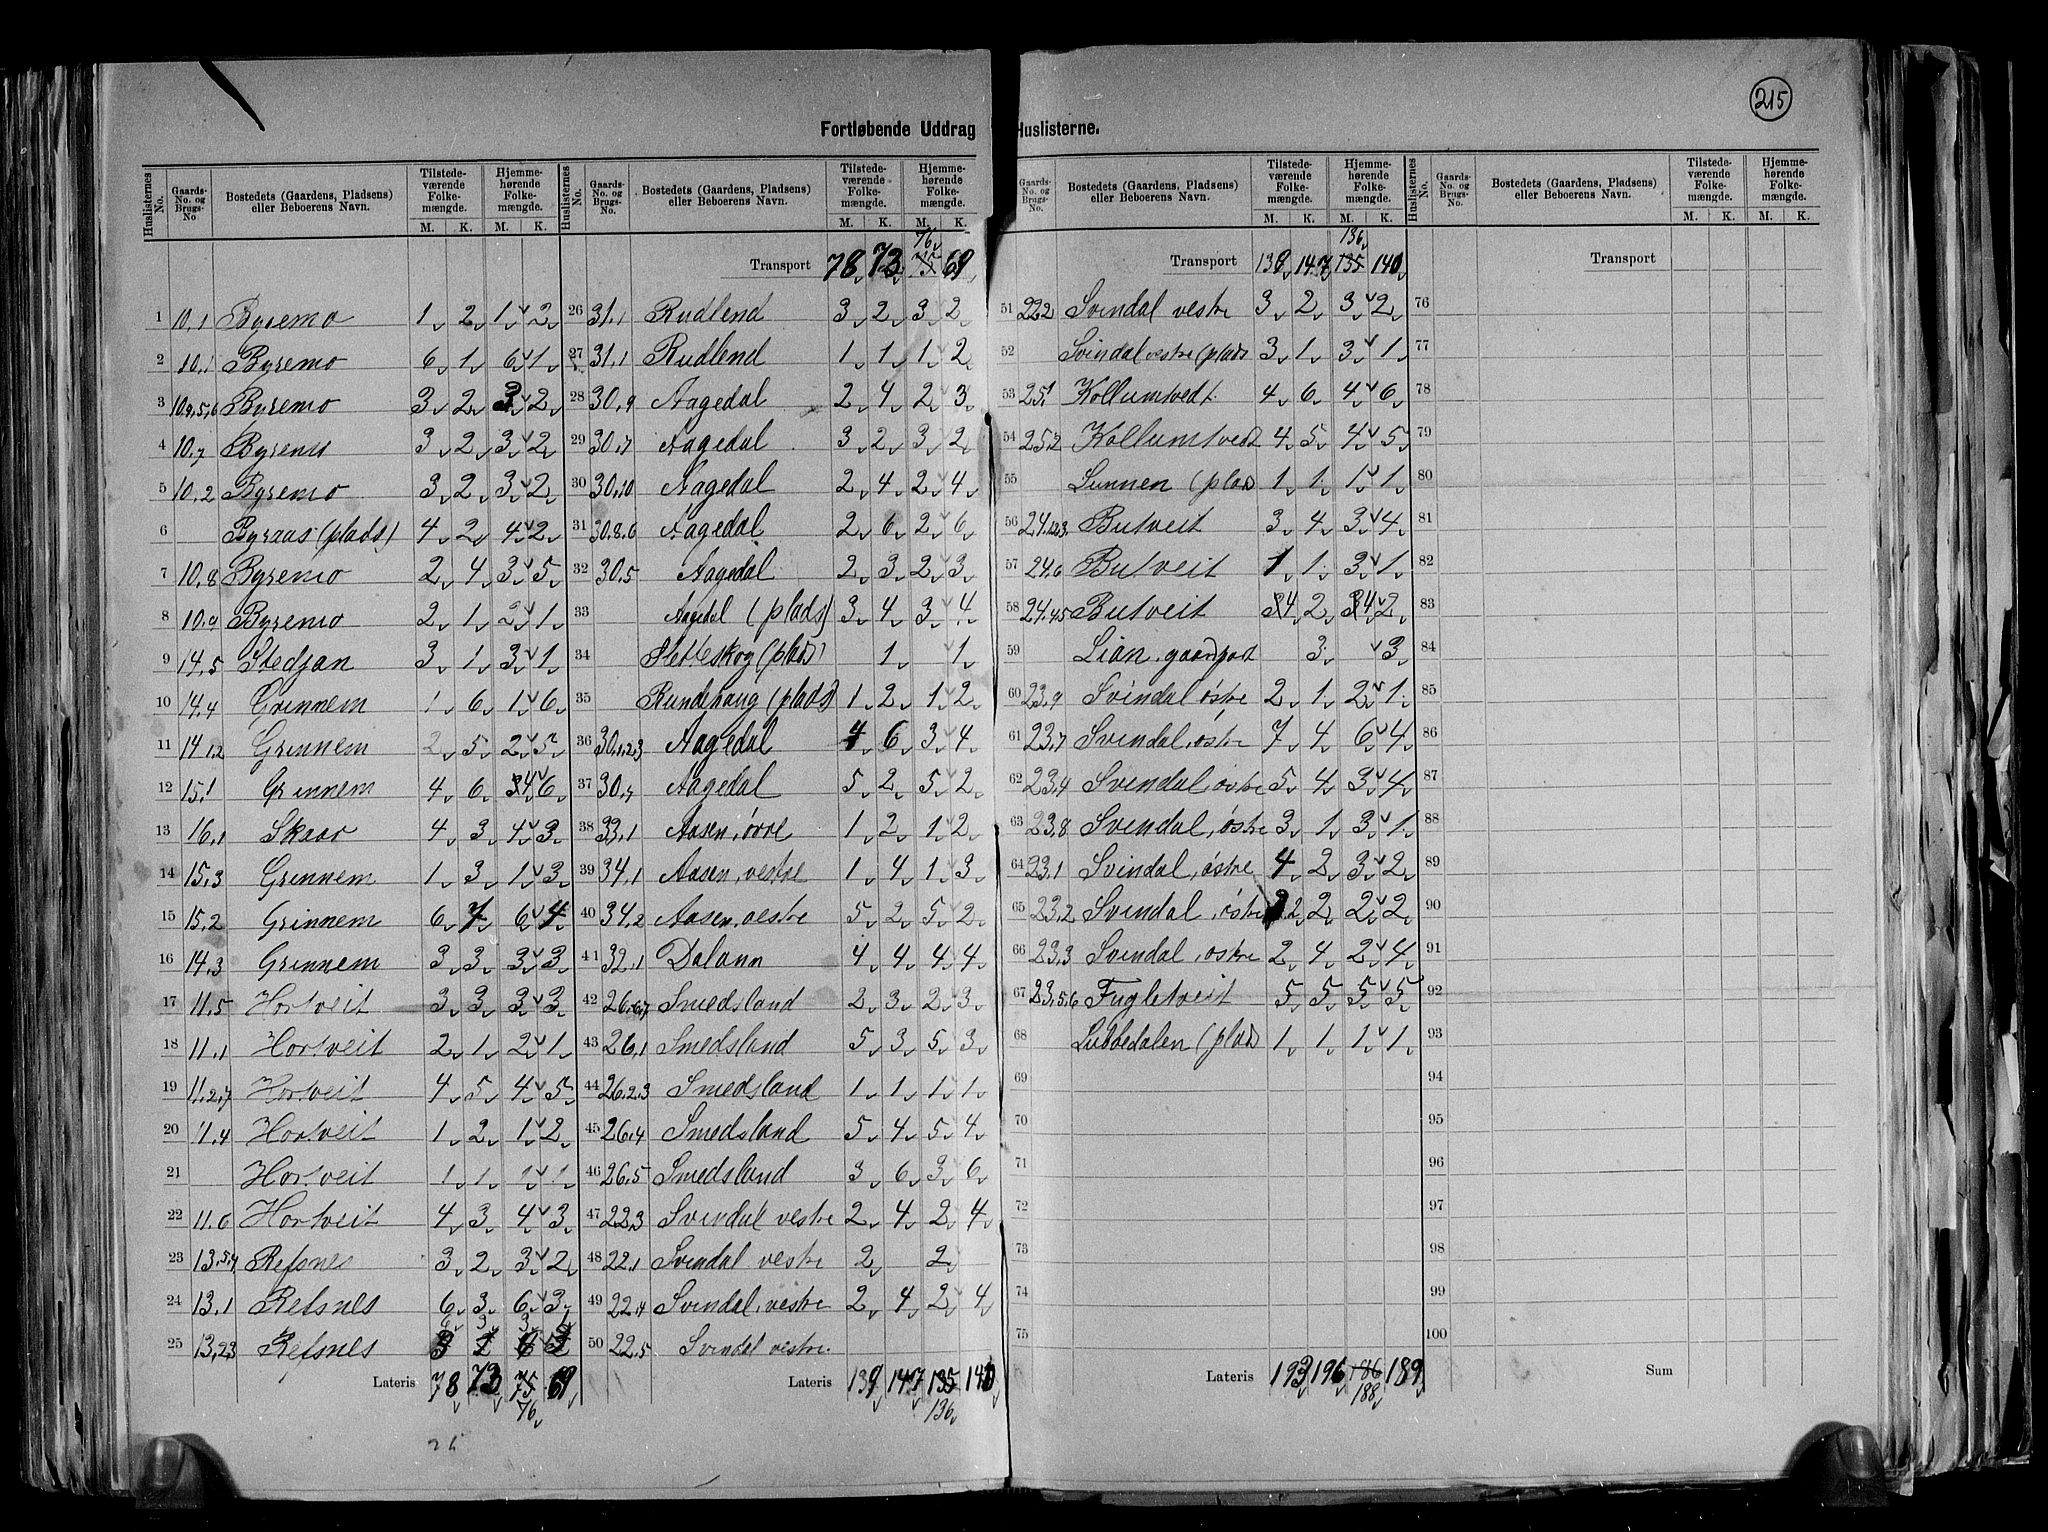 215
Fortløbende Uddrag Huslisterne.
Huslisternes No. Gaards-No. og Brugs-No. Bostedets (Gaardens, Pladsens) eller Beboerens Navn. Tilstedeværende Folkemængde. M. K. Hjemmehørende Folkemængde. M. K.
1 10,1 Byremo 1 2 1 2
2 10,1 Byremo 6 1 6 1
3 10,9,5,6 Byremo 3 2 3 2
4 10,7 Byremo 3 2 3 2
5 10,2 Byremo 3 2 3 2
6 Byraas (plads) 4 2 4 2
7 10,8 Byremo 2 4 3 5
8 10,4 Byremo 2 1 2 1
9 14,5 Stedjan 3 1 3 1
10 14,4 Grinnem 1 6 1 6
11 14,1,2 Grinnem 2 5 2 5
12 15,1 Grinnem 4 6 4 6
13 16,1 Skaar 4 3 4 3
14 15,3 Grinnem 1 3 1 3
15 15,2 Grinnem 6 4 6 4
16 14,3 Grinnem 3 3 3 3
17 11,5 Hortveit 3 3 3 3
18 11,1 Hortveit 2 1 2 1
19 11,2,7 Hortveit 4 5 4 5
20 11,4 Hortveit 1 2 1 2
21 Hortveit 1 1 1 1
22 11,6 Hortveit 4 3 4 3
23 13,5,4 Refsnes 3 2 3 2
24 13,1 Refsnes 6 3 6 3
25 13,2,3 Refsnes
Lateris 78 73 75 69
76
Huslisternes No. Gaards-No. og Brugs-No. Bostedets (Gaardens, Pladsens) eller Beboerens Navn. Tilstedeværende Folkemængde. M. K. Hjemmehørende Folkemængde. M. K.
76
Transport 78 73 75 69
26 31,1 Rudlend 3 2 3 2
27 31,1 Rudlend 1 1 1 2
28 30,9 Aagedal 2 4 2 3
29 30,7 Aagedal 3 2 3 2
30 30,10 Aagedal 2 4 2 4
31 30,8,6 Aagedal 2 6 2 6
32 30,5 Aagedal 2 3 2 3
33 Aagedal (plads) 3 4 3 4
34 Sletteskog (plads) 1 1
35 Rundehaug (plads) 1 2 1 2
36 30,1,2,3 Aagedal 4 6 3 4
37 30,4 Aagedal 5 2 5 2
38 33,1 Aasen, øvre 1 2 1 2
39 34,1 Aasen, vestre 1 4 1 3
40 34,2 Aasen, vestre 5 2 5 2
41 32,1 Dalann 4 4 4 4
42 26,6,7 Smedsland 2 3 2 3
43 26,1 Smedsland 5 3 5 3
44 26,2,3 Smedsland 1 1 1 1
45 26,4 Smedsland 5 4 5 4
46 26,5 Smedsland 3 6 3 6
47 22,3 Svindal vestre 2 4 2 4
48 22,1 Svindal vestre 2 2
49 22,4 Svindal, vestre 2 4 2 4
50 22,5 Svindal vestre.
Lateris 139 147 135 140
136
Gaards-No. og Brugs-No. Bostedets (Gaardens, Pladsens) eller Beboerens Navn. Tilstedeværende Folkemængde. M. K. Hjemmehørende Folkemængde. M. K.
136
Transport 139 147 135 140
51 22,2 Svindal vestre 3 2 3 2
52 Svindal vestre (plads 3 1 3 1
53 25,1 Kollumtvedt 4 6 4 6
54 25,2 Kollumtvedt 4 5 4 5
55 Sunnen (plads) 1 1 1 1
56 24,1,2,3 Butveit 3 4 3 4
57 24,6 Butveit 1 1 3 1
58 24,4,5 Butveit 3 4 2 3 4 2
59 Lian, gaardpart 3 3
60 23,9 Svindal østre 2 1 2 1
61 23,7 Svindal, østre 7 4 6 4
62 23,4 Svendal, østre 5 4 3 4
63 23,8 Svendal, østre 3 1 3 1
64 23,1 Svindal, østre 4 2 3 2
65 23,2 Svendal, østre 2 2 2 2
66 23,3 Svindal, østre 2 4 2 4
67 23,5,6 Fugletveit 5 5 5 5
68 Lubbedalen (plads) 1 1 1 1
69
70
71
72
73
74
75
Lateris 193 196 186 189
188
Huslisternes No. Gaards-No. og Brugs-No. Bostedets (Gaardens, Pladsens) eller Beboerens Navn. Tilstedeværende Folkemængde. M. K. Hjemmehørende Folkemængde. M. K.
Transport
76
77
78
79
80
81
82
83
84
85
86
87
88
89
90
91
92
93
94
95
96
97
98
99
100
Sum